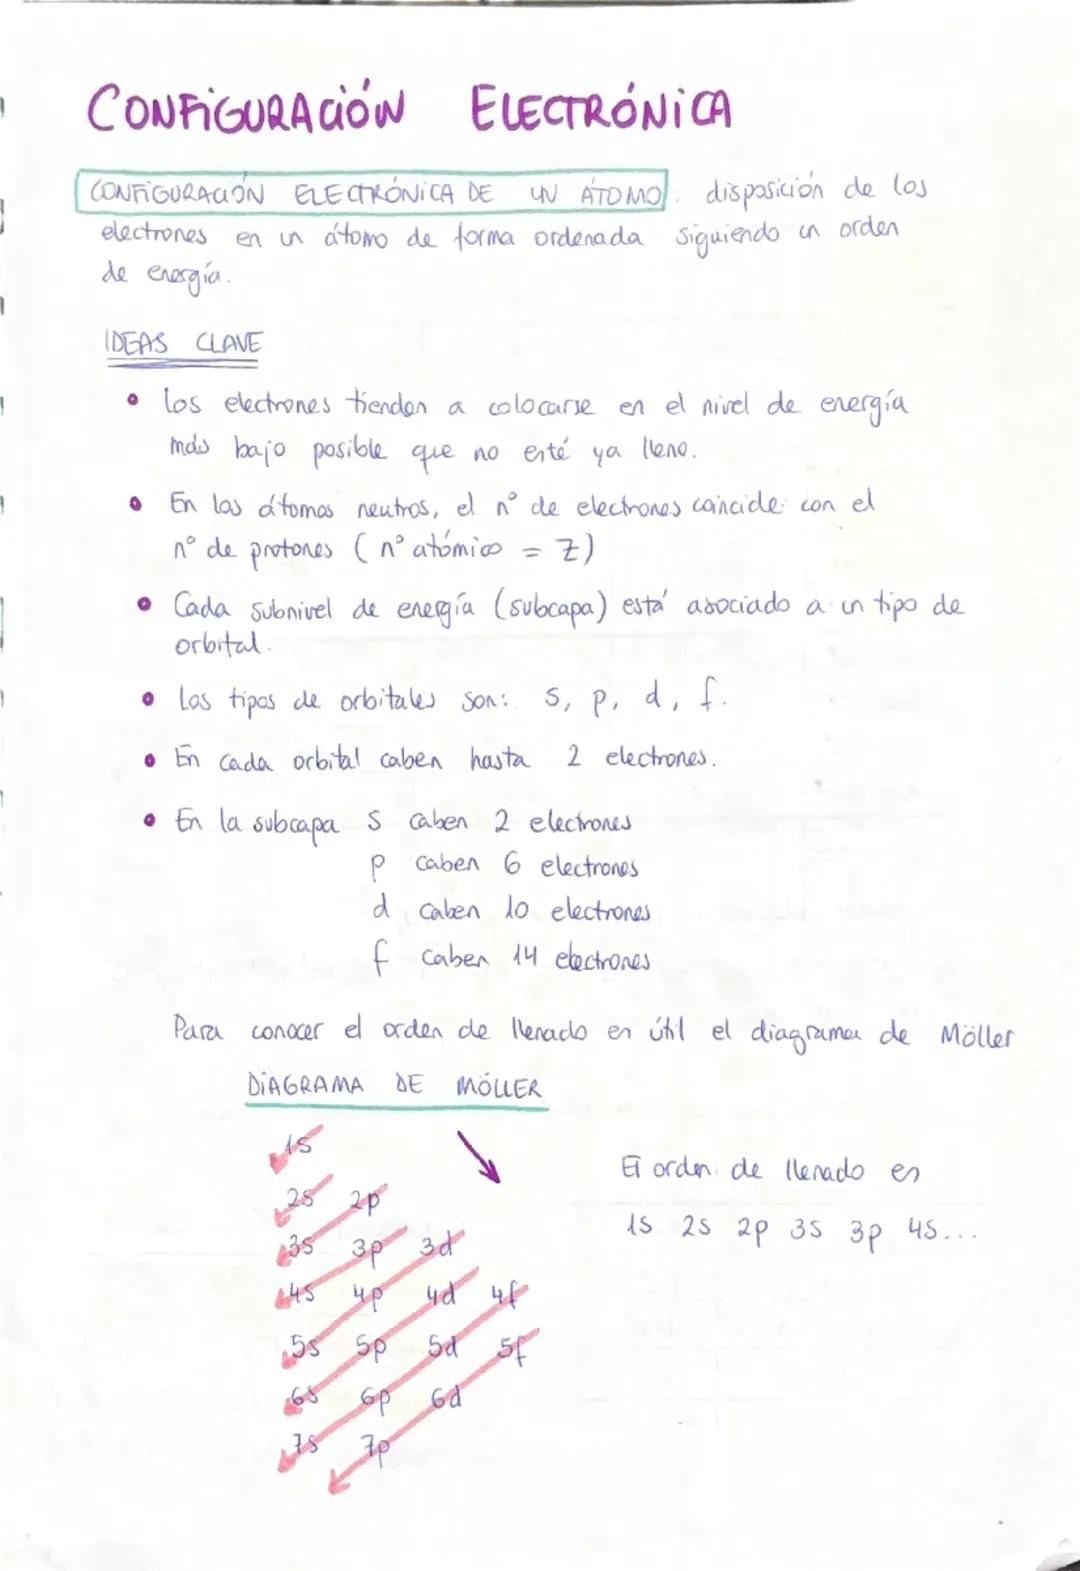 CONFIGURACIÓN ELECTRÓNICA
CONFIGURACIÓN ELECTRÓNICA DE UN ÁTOMO: disposición de los
electrones en un átomo de forma ordenada siguiendo un orden
de energía.
IDEAS CLAVE
• Los electrones tienden a colocarse en el nivel de energía
más bajo posible que no esté ya lleno.
• En los átomos neutros, el nº de electrones coincide con el
nº de protones (nº atómico = Z)
• Cada subnivel de energía (subcapa) está asociado a un tipo de
orbital.
• Los tipos de orbitales son: s, p, d, f.
• En cada orbital caben hasta 2 electrones.
• En la subcapa s caben 2 electrones
p caben 6 electrones
d caben 10 electrones
f caben 14 electrones
Para conocer el orden de llenado es útil el diagrama de Möller
DIAGRAMA DE MÖLLER
1s
2s 2p
3s 3p 3d
4s 4p 4d 4f
5s 5p 5d 5f
6s 6p 6d
7s 7p
El orden de llenado es
1s 2s 2p 3s 3p 4s...